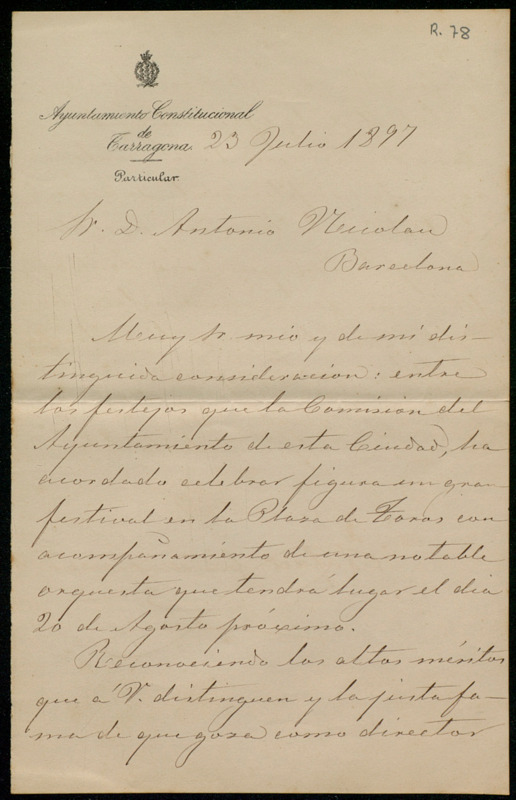 R. 78
Ayuntamiento Constitucional
de
Tarragona. 23 Julio 1897
Particular
Sr. D. Antonio Nicolau
Barcelona
Muy Sr. mio y de mi dis-
tinguida consideracion: entre
los festejos que la Comision del
Ayuntamiento de esta Ciudad, ha
acordado celebrar figura un gran
festival en la Plaza de Toros con
acompañamiento de una notable
orquesta que tendrá lugar el dia
20 de Agosto próximo.
Reconociendo los altos méritos
que á V. distinguen y la justa fa-
ma de que goza como director